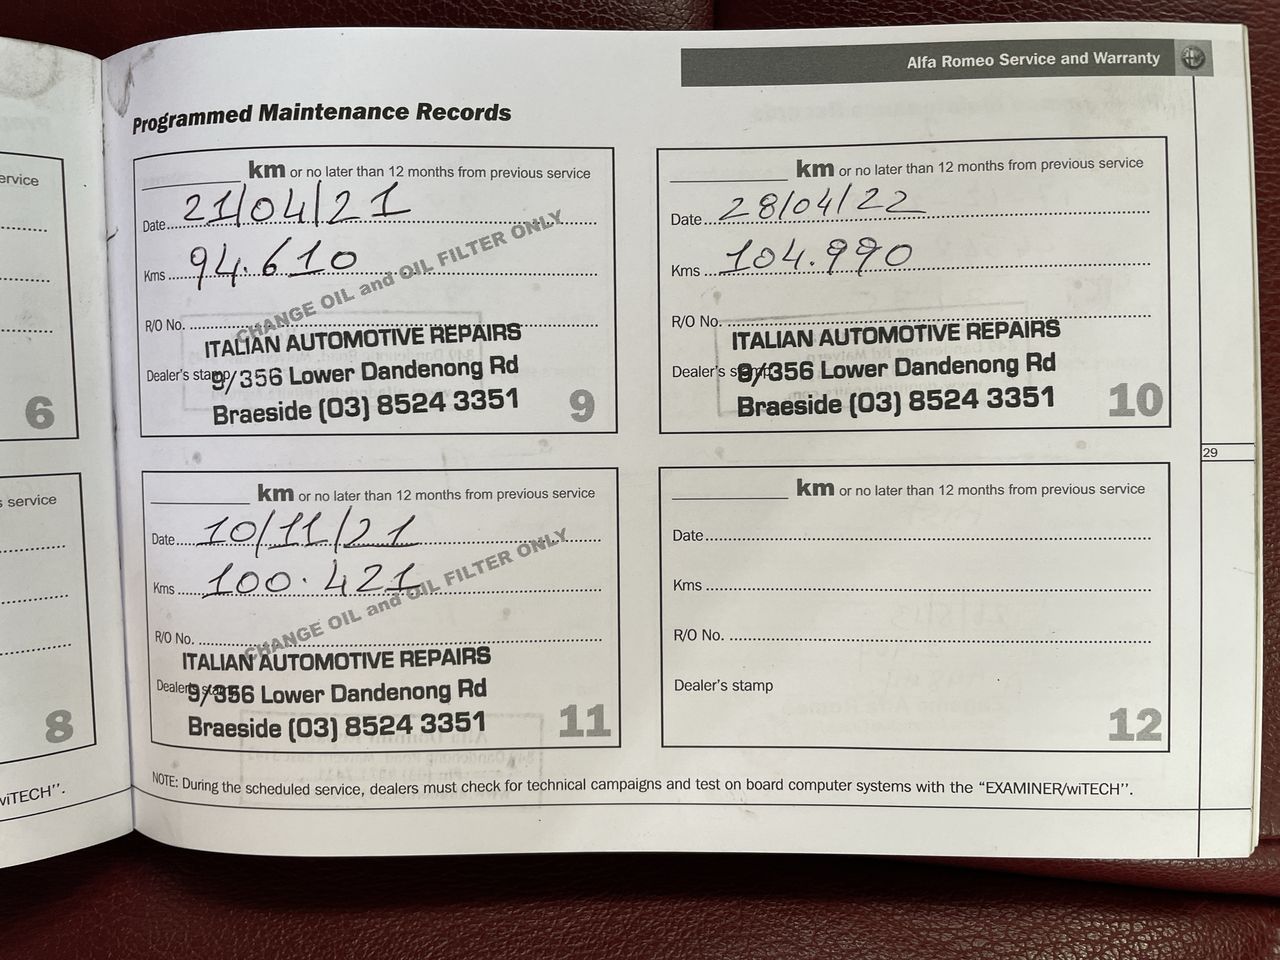 Alfa Romeo Service and Warranty
Programmed Maintenance Records
ervice
6
s service
8
viTECH".
km or no later than 12 months from previous service
Date 21/04/21
Kms 94.610
CHANGE OIL and OIL FILTER ONLY
R/O No.
ITALIAN AUTOMOTIVE REPAIRS
Dealer's stamp 9/356 Lower Dandenong Rd
Braeside (03) 8524 3351
9
km or no later than 12 months from previous service
Date 28/04/22
Kms 104.990
R/O No.
ITALIAN AUTOMOTIVE REPAIRS
Dealer's stamp 9/356 Lower Dandenong Rd
Braeside (03) 8524 3351
10
km or no later than 12 months from previous service
Date 10/11/21
Kms 100.421
CHANGE OIL and OIL FILTER ONLY
R/O No.
ITALIAN AUTOMOTIVE REPAIRS
Dealer's stamp 9/356 Lower Dandenong Rd
Braeside (03) 8524 3351
11
km or no later than 12 months from previous service
Date
Kms
R/O No.
Dealer's stamp
12
29
NOTE: During the scheduled service, dealers must check for technical campaigns and test on board computer systems with the “EXAMINER/wiTECH”.